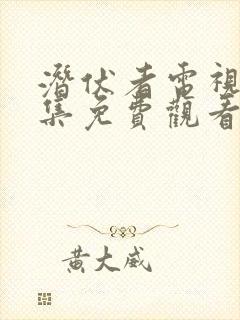 潛伏者電視
集免費觀看
黃大威